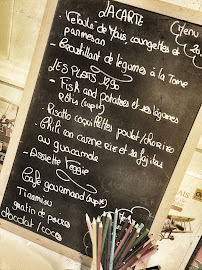 LA CARTE
Menu
- Velouté de Maïs courgettes et
parmesan
- Croustillant de légumes à la Tome
LES PLATS
- Fish and potatoes et ses légumes
rôtis
- Risotto coquillettes poulet/chorizo
- Chili con carne riz et sa fajitas
au guacamole
- Assiette veggie
Café gourmand
Tiramisu
gratin de poires
chocolat/coco